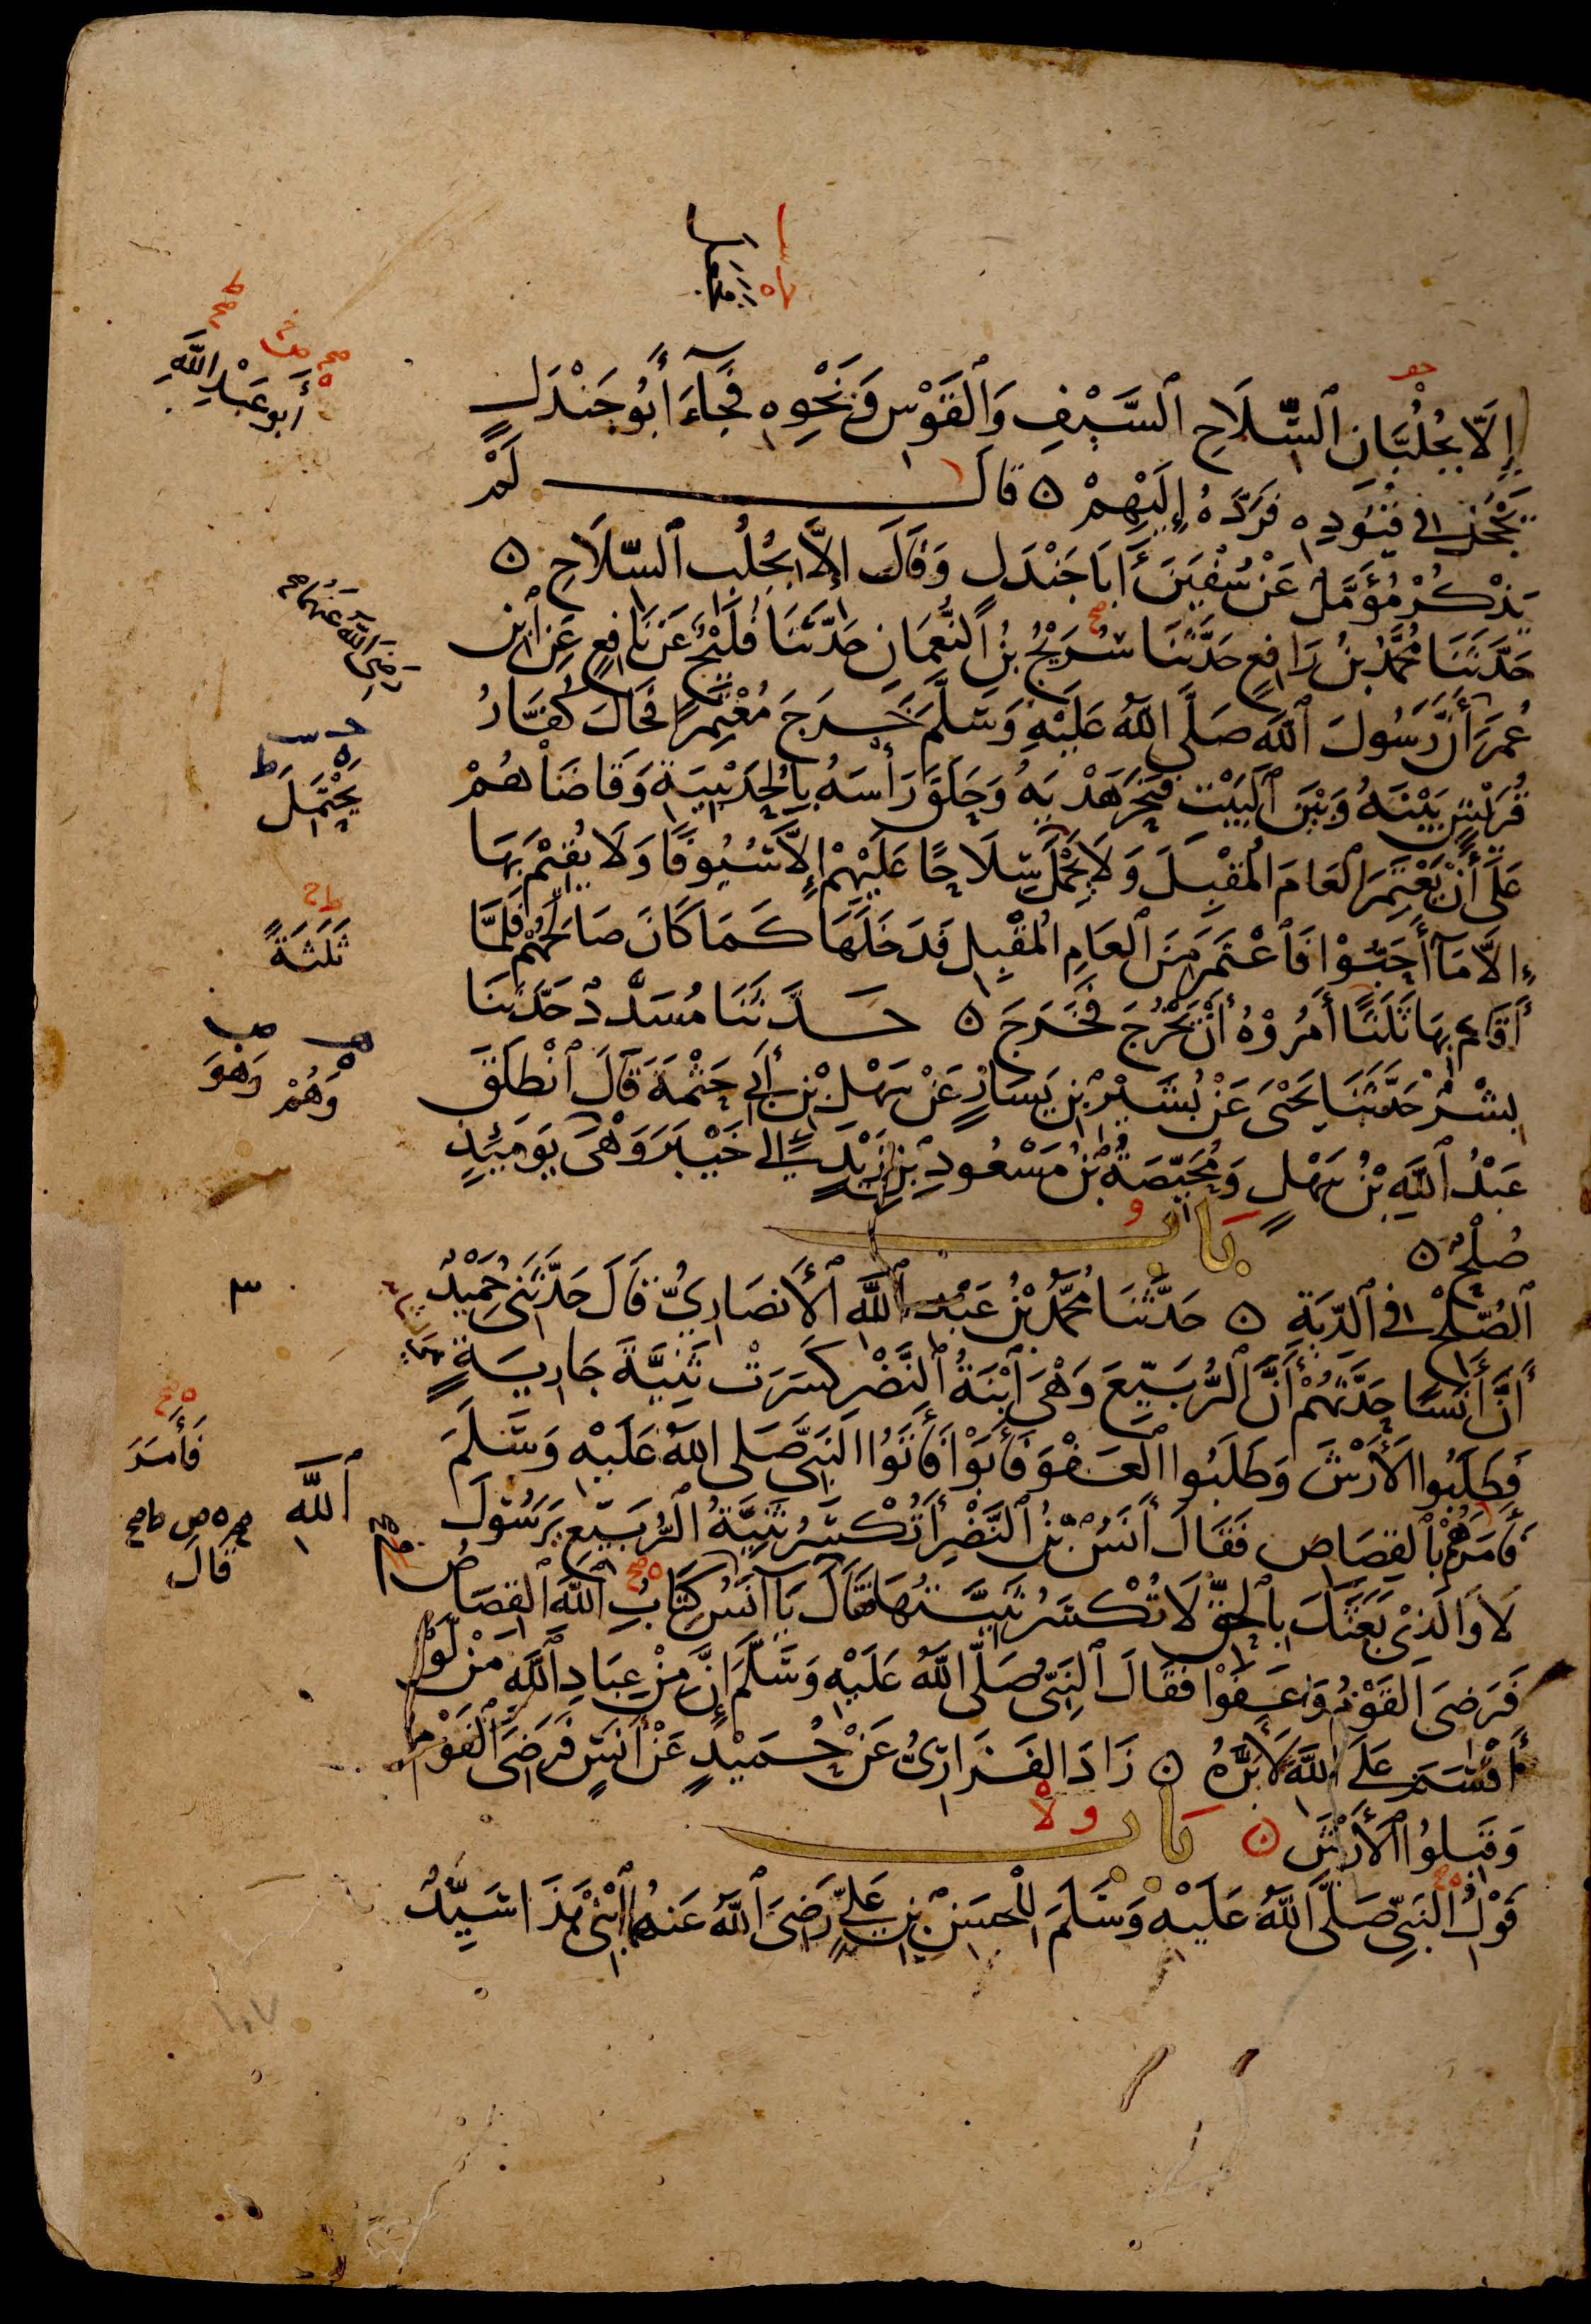 إِلَّا بِجُلُبَّانِ ٱلسِّلَاحِ ٱلسَّيْفِ وَٱلْقَوْسِ وَنَحْوِهِ فَجَآءَ أَبُو جَنْدَلٍ
يَحْجُلُ فِي قُيُودِهِ فَرَدَّهُ إِلَيْهِمْ ه قَالَ لَمْ
يَذْكُرْ مُؤَمَّلٌ عَنْ سُفْيٰنَ أَبَا جَنْدَلٍ وَقَالَ إِلَّا بِجُلُبِ ٱلسِّلَاحِ ه
حَدَّثَنَا مُحَمَّدُ بْنُ رَافِعٍ حَدَّثَنَا سُرَيْجُ بْنُ ٱلنُّعْمَانِ حَدَّثَنَا فُلَيْحٌ عَنْ نَافِعٍ عَنِ ٱبْنِ
عُمَرَ أَنَّ رَسُولَ ٱللّٰهِ صَلَّى ٱللّٰهُ عَلَيْهِ وَسَلَّمَ خَرَجَ مُعْتَمِرًا فَحَالَ كُفَّارُ
قُرَيْشٍ بَيْنَهُ وَبَيْنَ ٱلْبَيْتِ فَنَحَرَ هَدْيَهُ وَحَلَقَ رَأْسَهُ بِالْحُدَيْبِيَةِ وَقَاضَاهُمْ
عَلَى أَنْ يَعْتَمِرَ ٱلْعَامَ الْمُقْبِلَ وَلَا يَحْمِلَ سِلَاحًا عَلَيْهِمْ إِلَّا سُيُوفًا وَلَا يُقِيْمَ بِهَا
إِلَّا مَآ أَحَبُّوْا فَٱعْتَمَرَ مِنَ ٱلْعَامِ الْمُقْبِلِ فَدَخَلَهَا كَمَا كَانَ صَالَحَهُمْ فَلَمَّا
أَقَامَ بِهَا ثَلٰثًا أَمَرُوْهُ أَنْ يَخْرُجَ فَخَرَجَ ه حَدَّثَنَا مُسَدَّدٌ حَدَّثَنَا
بِشْرٌ حَدَّثَنَا يَحْيَى عَنْ بُشَيْرِ بْنِ يَسَارٍ عَنْ سَهْلِ بْنِ أَبِي حَثْمَةَ قَالَ ٱنْطَلَقَ
عَبْدُ ٱللّٰهِ بْنُ سَهْلٍ وَمُحَيِّصَةُ بْنُ مَسْعُودِ بْنِ زَيْدٍ إِلَى خَيْبَرَ وَهْيَ يَوْمَئِذٍ
صُلْحٌ ه بَابُ
ٱلصُّلْحِ فِي ٱلدِّيَةِ ه حَدَّثَنَا مُحَمَّدُ بْنُ عَبْدِ ٱللّٰهِ ٱلْأَنْصَارِيُّ قَالَ حَدَّثَنِي حُمَيْدٌ
أَنَّ أَنَسًا حَدَّثَهُمْ أَنَّ ٱلرُّبَيِّعَ وَهْيَ ٱبْنَةُ ٱلنَّضْرِ كَسَرَتْ ثَنِيَّةَ جَارِيَةٍ
فَطَلَبُوا الْأَرْشَ وَطَلَبُوا ٱلْعَفْوَ فَأَبَوْا فَأَتَوُا النَّبِيَّ صَلَّى اللّٰهُ عَلَيْهِ وَسَلَّمَ
فَأَمَرَهُمْ بِٱلْقِصَاصِ فَقَالَ أَنَسُ بْنُ ٱلنَّضْرِ أَتُكْسَرُ ثَنِيَّةُ ٱلرُّبَيِّعِ يَرَسُوْلَ ٱللّٰهِ
لَا وَالَّذِي بَعَثَكَ بِٱلْحَقِّ لَا تُكْسَرُ ثَنِيَّتُهَا فَقَالَ يَآ أَنَسُ كِتَابُ ٱللّٰهِ ٱلْقِصَاصُ
فَرَضِيَ ٱلْقَوْمُ وَعَفَوْا فَقَالَ ٱلنَّبِيُّ صَلَّى ٱللّٰهُ عَلَيْهِ وَسَلَّمَ إِنَّ مِنْ عِبَادِ ٱللّٰهِ مَنْ لَوْ
أَقْسَمَ عَلَى ٱللّٰهِ لَأَبَرَّهُ ه زَادَ الْفَزَارِيُّ عَنْ حُمَيْدٍ عَنْ أَنَسٍ فَرَضِيَ ٱلْقَوْمُ
وَقَبِلُوا ٱلْأَرْشَ ه بَابُ
قَوْلُ ٱلنَّبِيِّ صَلَّى ٱللّٰهُ عَلَيْهِ وَسَلَّمَ لِلْحَسَنِ بْنِ عَلِيٍّ رَضِيَ ٱللّٰهُ عَنْهُمَا ٱبْنِي هٰذَا سَيِّدٌ
أَبُو عَبْدِ اللّٰهِ
رَضِيَ اللّٰهُ عَنْهُمَا صح
يَحْمِلَ
ثَلٰثَةً
وَهُمْ وَهْوَ
فَأَمَرَ
قَالَ
١٠٧